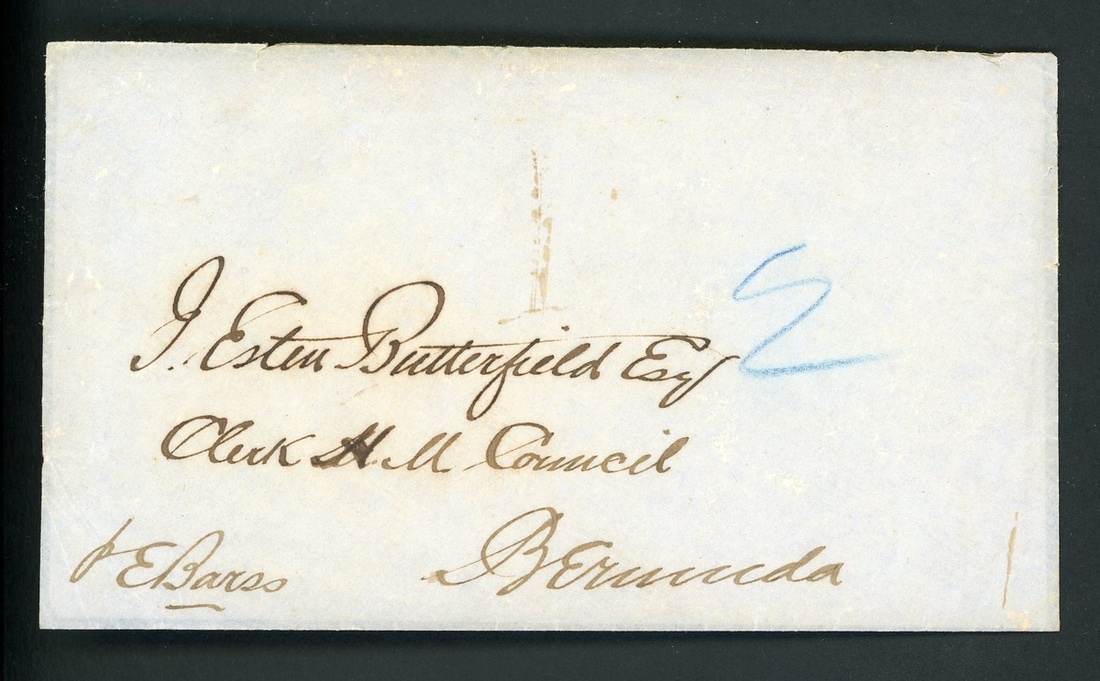 J. Esten Butterfield Esq
Clerk H. M Council
Bermuda
p E Barss